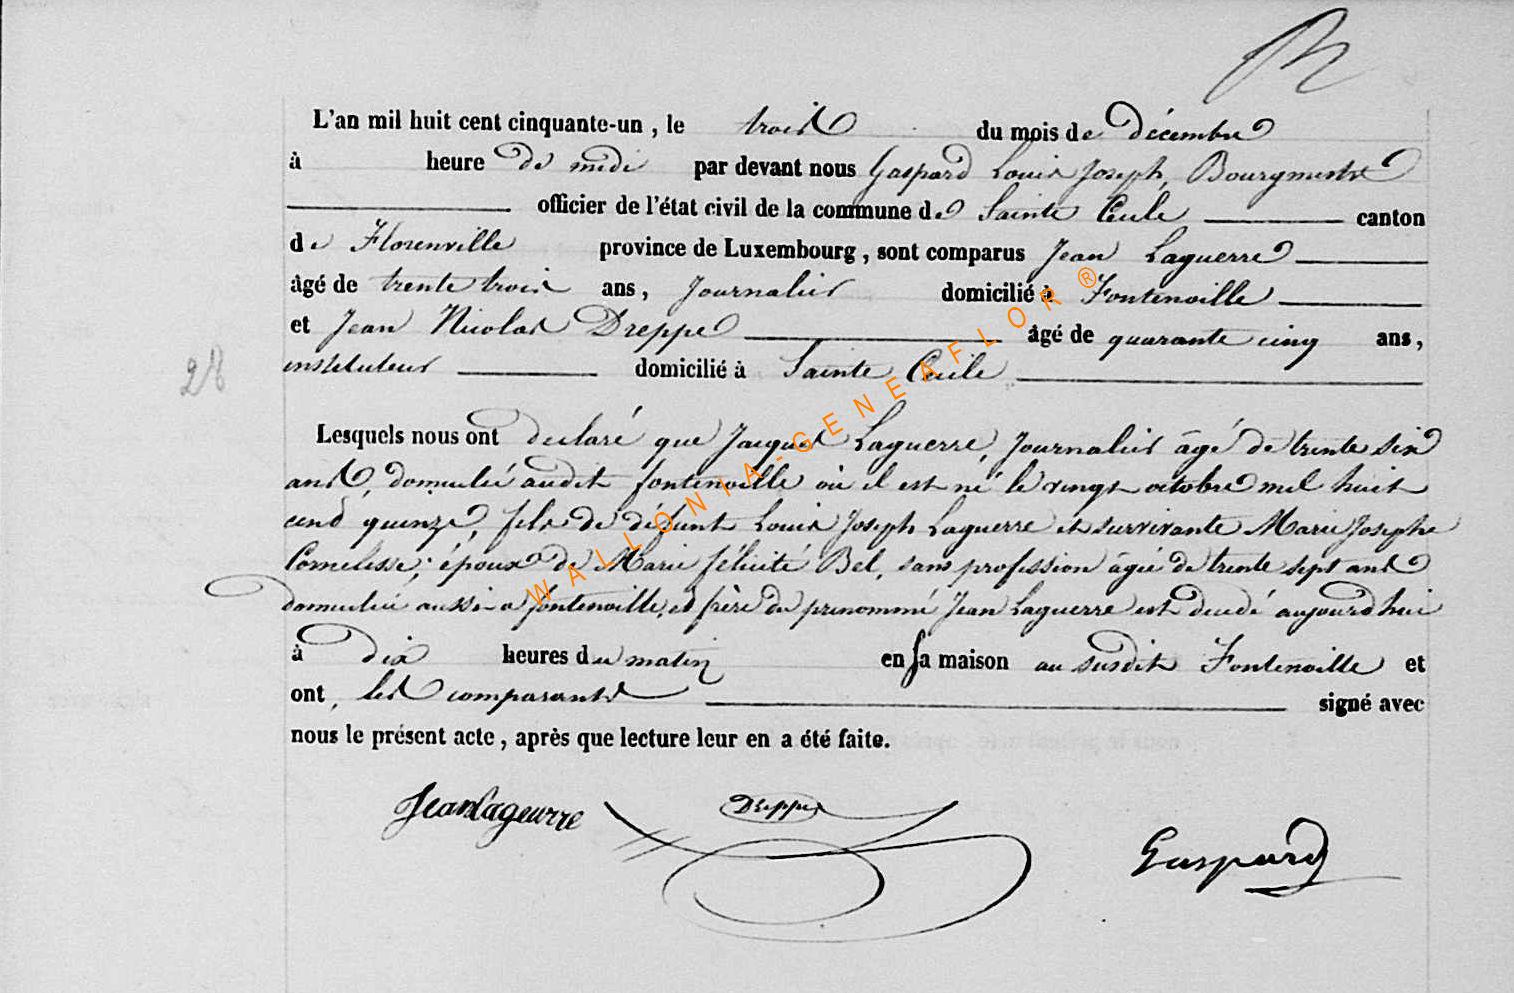 L'an mil huit cent cinquante-un, le trois du mois de décembre
à heure de midi par devant nous Gaspard Louis Joseph, Bourgmestre
officier de l'état civil de la commune de Sainte Cécile canton
de Florenville province de Luxembourg, sont comparus Jean Laguerre
âgé de trente trois ans, Journalier domicilié à Fontenoille
et Jean Nicolas Dreppe âgé de quarante cinq ans,
instituteur domicilié à Sainte Cécile
28
Lesquels nous ont declaré que Jacques Laguerre, Journalier âgé de trente six
ans, domicilié audit fontenoille où il est né le vingt octobre mil huit
cent quinze, fils de defunt Louis Joseph Laguerre et survivante Marie Josephe
Cornelisse; époux de Marie félicité Bel, sans profession âgée de trente sept ans
domiciliée aussi a fontenoille, et frère du prenommé Jean Laguerre est décédé aujourd'hui
à dix heures du matin en sa maison au susdit Fontenoille et
ont, les comparants signé avec
nous le présent acte, après que lecture leur en a été faite.
Jean Lageurre Dreppe Gaspard
WALLONIA-GENEAFLOR®